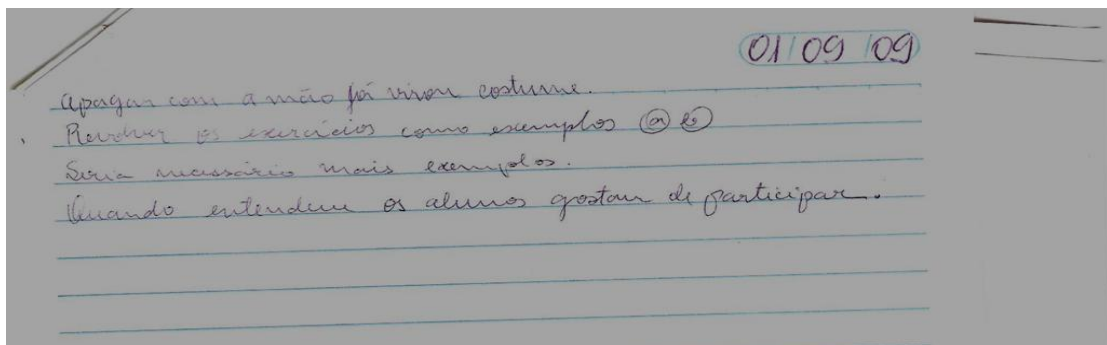 01/09/09
Apagar com a mão já virou costume.
Resolver os exercícios como exemplos a b
Seria necessário mais exemplos.
Quando entendem os alunos gostam de participar.